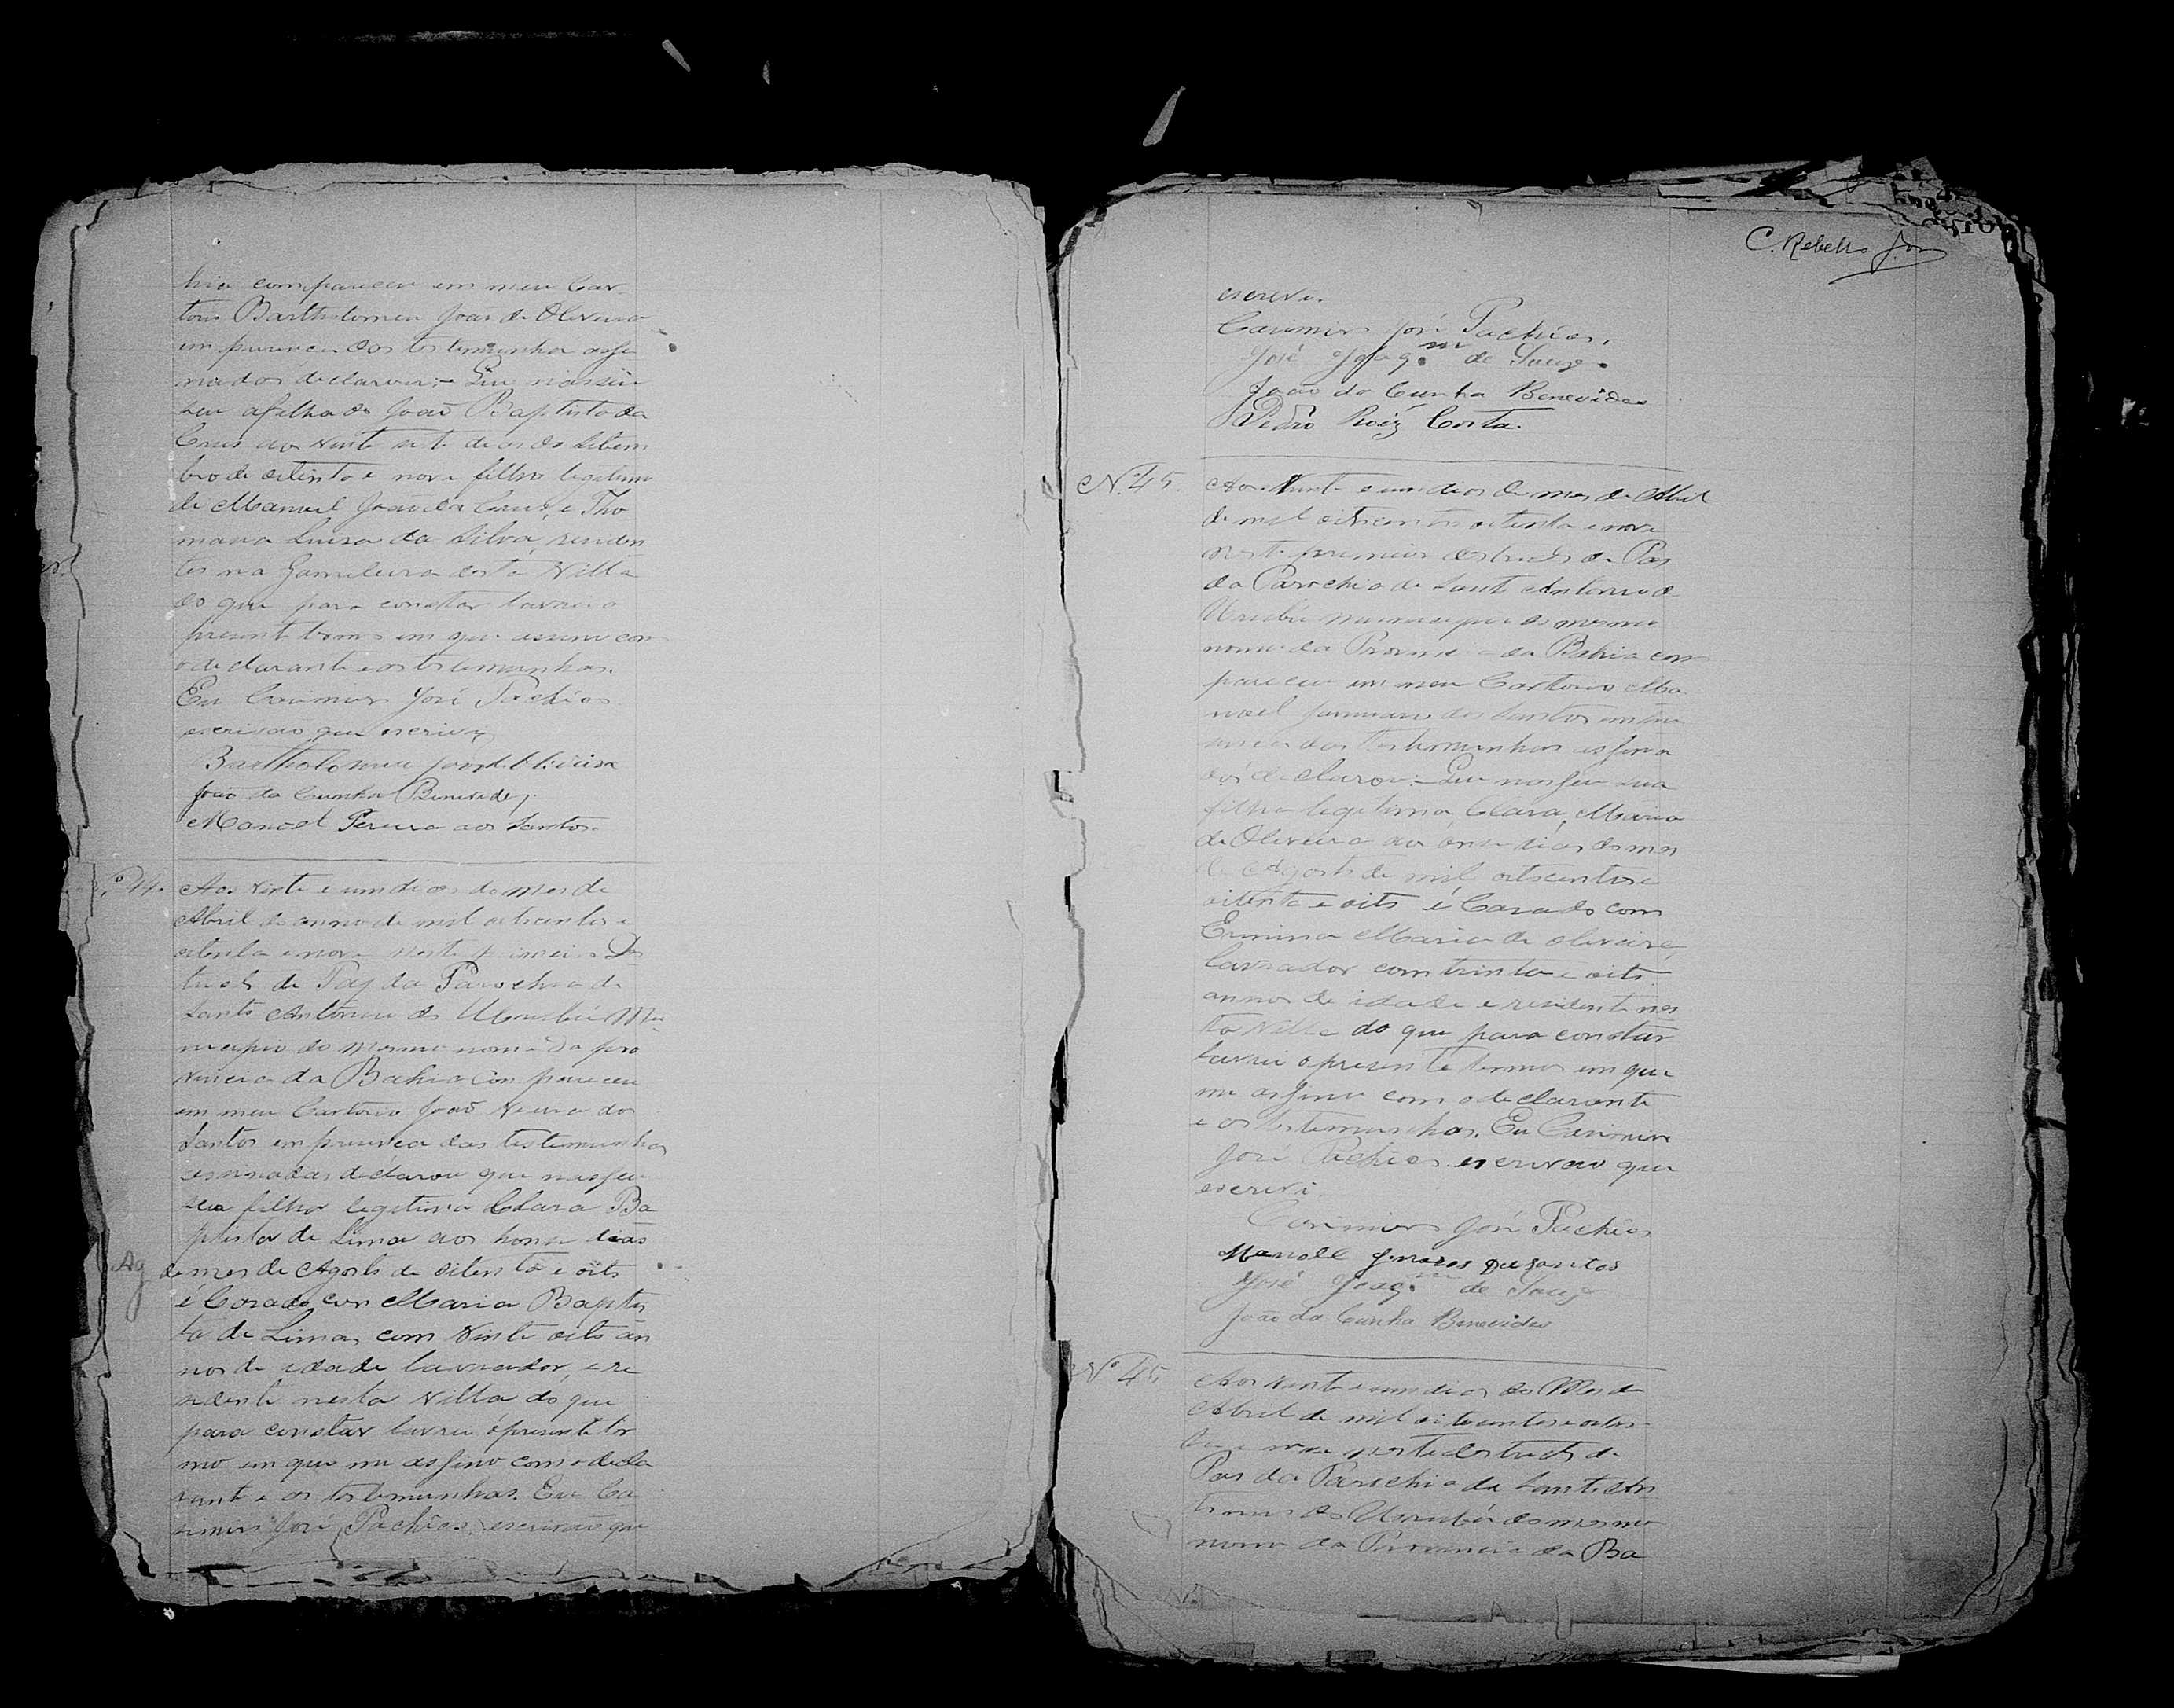 hia compareceu em meu Car
torio Bartholomeu João de Oliveira
em presença das testemunhas assi
nados declarou:- Que nasceu
seu afilhado João Baptista da
Crus ao vinte sete dias de Setem
bro de oitenta e nove filho legitimo
de Manuel João da Crus, e Tho
masia Luisa da Silva, residen
tes na Gameleira desta Villa
do que para constar lavrei o
presente termo em que assino com
o declarante e as testemunhas.
Eu Casimiro José Pachêco
escrivão que escrevi
Bartholomeu João d'Oliveira
João da Cunha Benevides
Manoel Pereira dos Santos
Nº 44. Aos vinte e um dias do mes de
Abril do anno de mil oitocentos e
oitenta e nove neste primeiro Des
tricto de Paz da Parochia de
Santo Antonio do Urubú Mu
nicipio do mesmo nome da pro
vincia da Bahia compareceu
em meu Cartorio João Vieira dos
Santos em presença das testemunhas
assinadas declarou que nasceu
sua filha legitima Clara Ba
ptista de Lima aos honse dias
Ag do mes de Agosto de oitenta e oito
é Casado com Maria Baptis
ta de Lima, com vinte oito an
nos de idade lavrador, e re
sidente nesta Villa do que
para constar lavrei o presente ter
mo em que me assino com o decla
rante e as testemunhas. Eu Ca
simiro José Pachêco, escrivão que
C. Rebello Jor
escrevi.
Casimiro José Pachêco,
José Joaqm de Souza
João da Cunha Benevides
Pedro Roiz Costa.
N. 45. Aos Vinte e um dias do mes de Abril
de mil oitocentos oitenta e nove
neste primeiro destricto de Pas
da Parochia de Santo Antonio do
Urubú municipio do mesmo
nome da Provincia da Bahia com
pareceu em meu Cartorio Ma
noel Januario dos Santos em pre
sença das testemunhas assina
das declarou:- Que nasceu sua
filha legitima, Clara, Maria
de Oliveira ao onse dias do mes
de Agosto de mil oitocentos e
oitenta e oito é Casado com
Ermina Maria de Oliveira,
lavrador com trinta e oito
annos de idade e residente nes
ta Villa do que para constar
lavrei o presente termo em que
me assino com o declarante
e as testemunhas. Eu Casimiro
José Pachêco escrivão que
escrevi
Casimiro José Pachêco
Manoel de santos
José Joaqm de Souza
João da Cunha Benevides
Nº 45 Aos vinte e um dias do Mes de
Abril de mil oitocentos e oiten
ta e nove neste destricto de
Pas da Parochia de Santo An
tonio do Urubú do mesmo
nome da Provincia da Ba